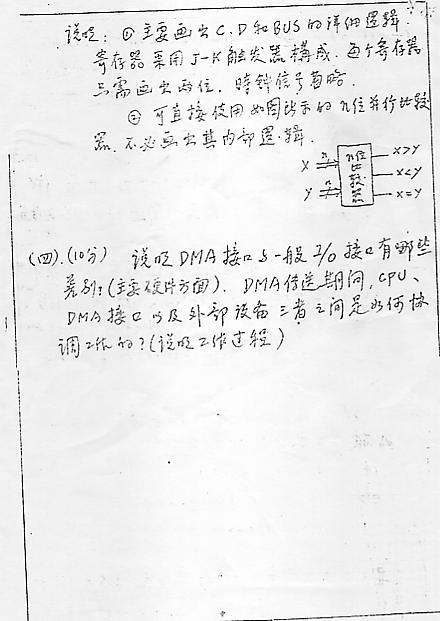 说明: ① 主要画出 C.D 和 BUS 的详细逻辑.
寄存器采用 J-K 触发器构成. 每个寄存器
只需画出两位. 时钟信号省略.
② 可直接使用如图所示的 n位并行比较
器. 不必画出其内部逻辑.
X n
Y n
n位比较器
X>Y
X<Y
X=Y
(四).(10分) 说明 DMA 接口与一般 I/O 接口有哪些
差别?(主要硬件方面). DMA传送期间, CPU、
DMA 接口以及外部设备三者之间是如何协
调工作的?(说明工作过程)